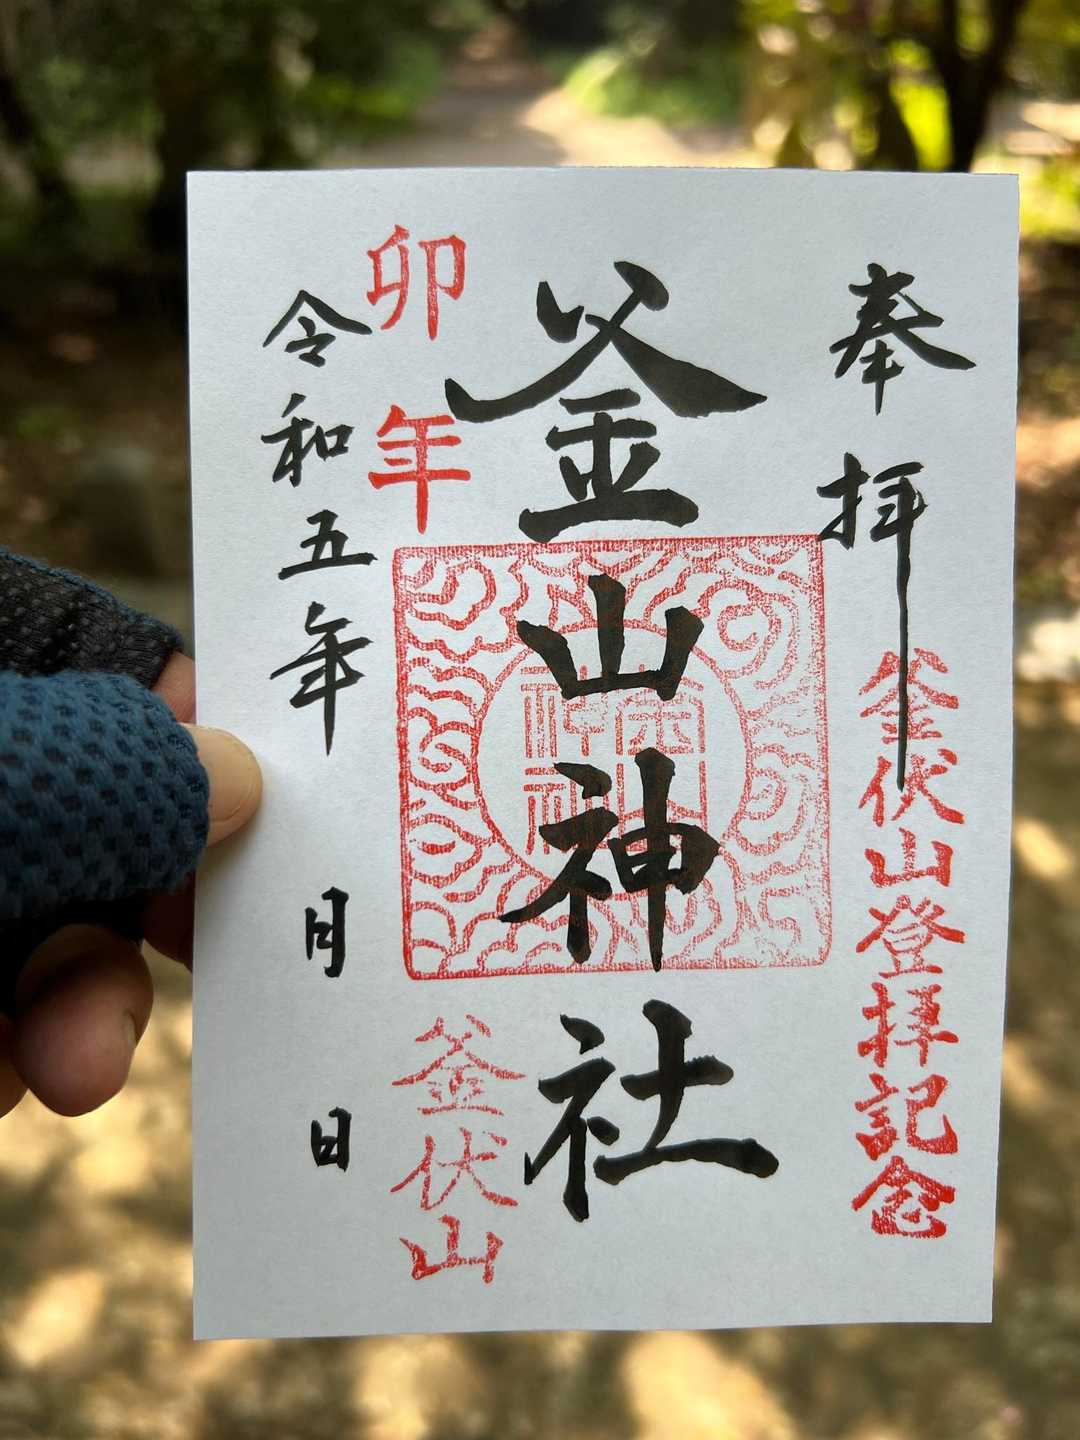 奉拝
釜伏山登拝記念
釜山神社
釜山神社
卯年
釜伏山
令和五年 月 日